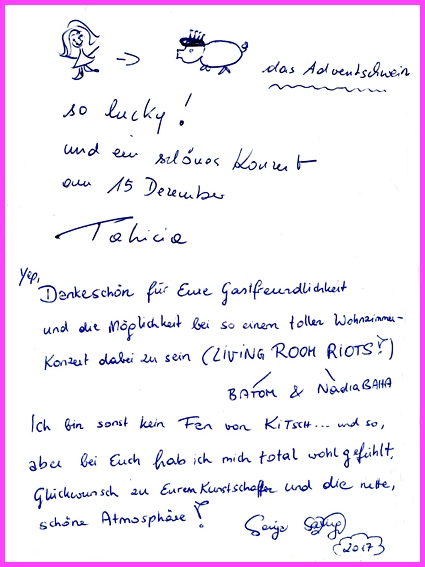 das Adventschwein
so lucky!
und ein schönes Konzert
am 15 Dezember
Yep,
Dankeschön für Eure Gastfreundlichkeit
und die Möglichkeit bei so einem tollen Wohnzimmer-
Konzert dabei zu sein (LIVING ROOM RIOTS!)
BATOM & NadiaBAHA
Ich bin sonst kein Fan von KITSCH... und so,
aber bei Euch hab ich mich total wohl gefühlt,
Glückwunsch zu Eurem Kunstschaffen und die nette,
schöne Atmosphäre!
2017